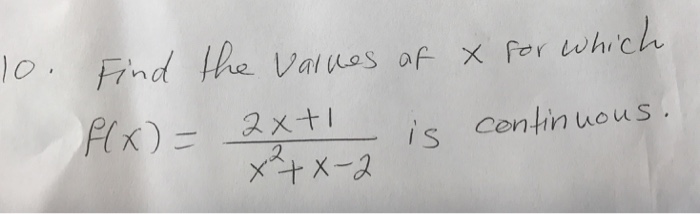 10. Find the values of x for which
f(x) = \frac{2x+1}{x^2+x-2} is continuous.